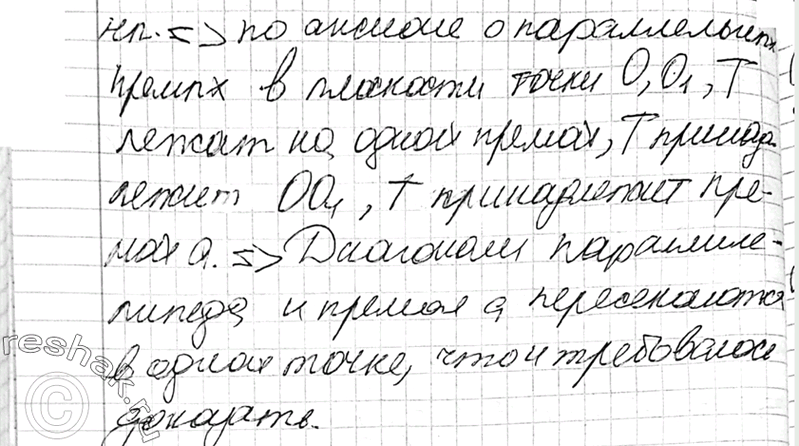 нп. => по аксиоме о параллельных
прямых в плоскости точки O, O₁, T
лежат на одной прямой, T принад
лежит OO₁, T принадлежит пря-
мой a. => Диагонали параллеле-
пипеда и прямая a пересекаются
в одной точке, что и требовалось
доказать.
reshak.ru
©